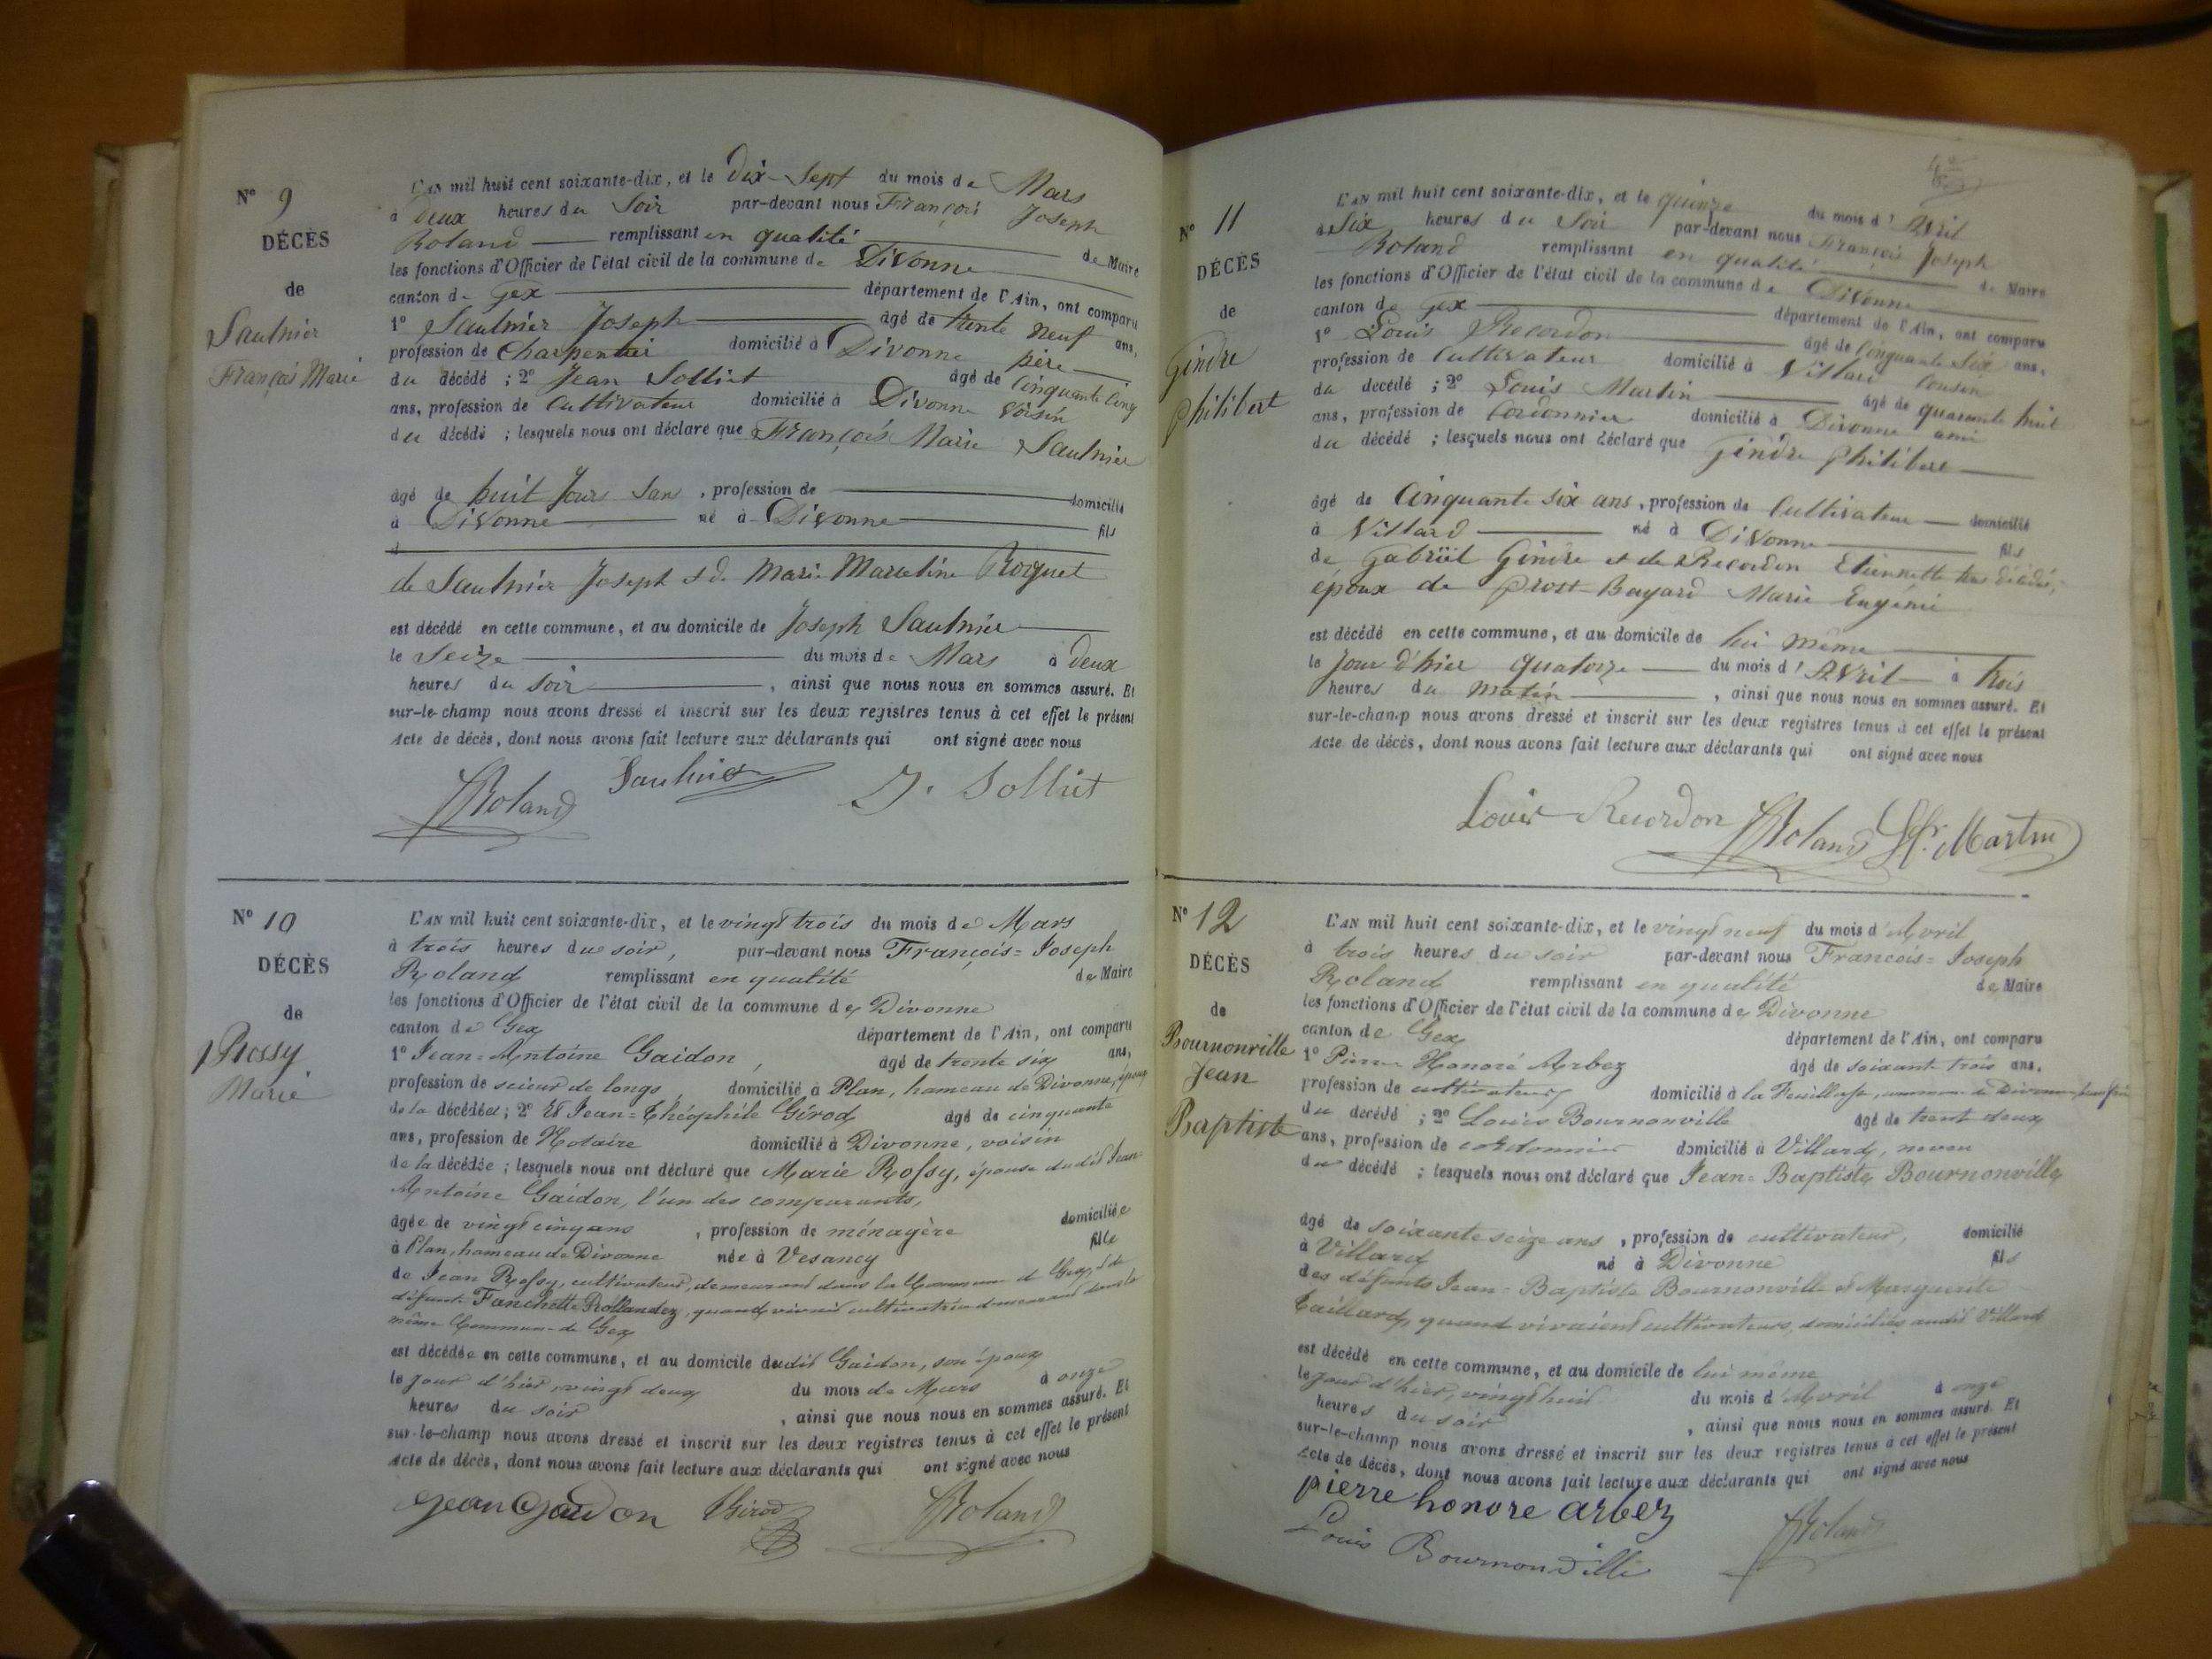 N° 9
DÉCÈS
de
Saulnier
François Marie
L'AN mil huit cent soixante-dix, et le Dix-Sept du mois de Mars
à Deux heures du Soir par-devant nous François Joseph
Roland remplissant en qualité de Maire
les fonctions d'Officier de l'état civil de la commune de Divonne
canton de Gex département de l'Ain, ont comparu
1° Saulnier Joseph âgé de trente neuf ans,
profession de Charpentier domicilié à Divonne père
du décédé ; 2° Jean Solliet âgé de Cinquante Cinq
ans, profession de Cultivateur domicilié à Divonne voisin
du décédé ; lesquels nous ont déclaré que François Marie Saulnier
âgé de huit Jours San , profession de domicilié
à Divonne né à Divonne fils
de Saulnier Joseph & de Marie Marceline Roquet
est décédé en cette commune, et au domicile de Joseph Saulnier
le Seize du mois de Mars à deux
heures du Soir , ainsi que nous nous en sommes assuré. Et
sur-le-champ nous avons dressé et inscrit sur les deux registres tenus à cet effet le présent
Acte de décès, dont nous avons fait lecture aux déclarants qui ont signé avec nous
Roland Saulnier J. Solliet
N° 10
DÉCÈS
de
Rossy
Marie
L'AN mil huit cent soixante-dix, et le vingt trois du mois de Mars
à trois heures du soir, par-devant nous François=Joseph
Roland remplissant en qualité de Maire
les fonctions d'Officier de l'état civil de la commune de Divonne
canton de Gex département de l'Ain, ont comparu
1° Jean=Antoine Gaidon, âgé de trente six ans,
profession de scieur de longs, domicilié à Plan, hameau de Divonne, époux
de la décédée ; 2° Et Jean=Théophile Girod âgé de cinquante
ans, profession de Notaire domicilié à Divonne, voisin
de la décédée ; lesquels nous ont déclaré que Marie Rossy, épouse dudit Jean
Antoine Gaidon, l'un des comparants,
âgée de vingt cinq ans , profession de ménagère domiciliée
à Plan, hameau de Divonne née à Vesancy fille
de Jean Rossy, cultivateur, demeurant dans la Commune de Gex, & de
défunte Fanchette Rollandez, quand vivait cultivatrice demeurant dans la
même Commune de Gex
est décédée en cette commune, et au domicile dudit Gaidon, son époux
le jour d'hier, vingt deux du mois de Mars à onze
heures du soir , ainsi que nous nous en sommes assuré. Et
sur-le-champ nous avons dressé et inscrit sur les deux registres tenus à cet effet le présent
Acte de décès, dont nous avons fait lecture aux déclarants qui ont signé avec nous
jean gaidon Girod Roland
N° 11
DÉCÈS
de
Gindre
Philibert
L'AN mil huit cent soixante-dix, et le quinze du mois d'Avril
à Six heures du Soir par-devant nous François Joseph
Roland remplissant en qualité de Maire
les fonctions d'Officier de l'état civil de la commune de Divonne
canton de Gex département de l'Ain, ont comparu
1° Louis Recordon âgé de Cinquante Six ans,
profession de Cultivateur domicilié à Villard Cousin
du décédé ; 2° Louis Martin âgé de quarante huit
ans, profession de Cordonnier domicilié à Divonne ami
du décédé ; lesquels nous ont déclaré que Gindre Philibert
âgé de Cinquante six ans , profession de Cultivateur domicilié
à Villard né à Divonne fils
de Gabriel Gindre et de Recordon Etiennette tous décédés,
époux de Prost-Bayard Marie Eugénie
est décédé en cette commune, et au domicile de lui même
le Jour d'hier quatorze du mois d'Avril à trois
heures du matin , ainsi que nous nous en sommes assuré. Et
sur-le-champ nous avons dressé et inscrit sur les deux registres tenus à cet effet le présent
Acte de décès, dont nous avons fait lecture aux déclarants qui ont signé avec nous
Louis Recordon Roland Martin
N° 12
DÉCÈS
de
Bournonville
Jean
Baptiste
L'AN mil huit cent soixante-dix, et le vingt neuf du mois d'Avril
à trois heures du soir par-devant nous François=Joseph
Roland remplissant en qualité de Maire
les fonctions d'Officier de l'état civil de la commune de Divonne
canton de Gex département de l'Ain, ont comparu
1° Pierre Honoré Arbez âgé de soixante trois ans,
profession de cultivateur domicilié à la commune de Divonne
du décédé ; 2° Louis Bournonville âgé de trente deux
ans, profession de cordonnier domicilié à Villard, neveu
du décédé ; lesquels nous ont déclaré que Jean=Baptiste Bournonville
âgé de soixante seize ans , profession de cultivateur, domicilié
à Villard né à Divonne fils
des défunts Jean=Baptiste Bournonville & Marguerite
Taillard, quand vivaient cultivateurs, domiciliés audit Villard
est décédé en cette commune, et au domicile de lui même
le jour d'hier, vingt huit du mois d'Avril à onze
heures du soir , ainsi que nous nous en sommes assuré. Et
sur-le-champ nous avons dressé et inscrit sur les deux registres tenus à cet effet le présent
Acte de décès, dont nous avons fait lecture aux déclarants qui ont signé avec nous
pierre honore arbez
Louis Bournonville Roland